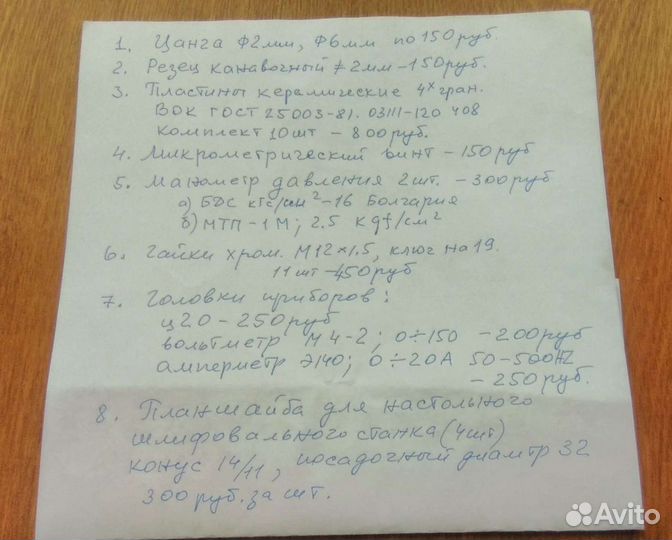 1. Цанга Ф2мм, Ф6мм по 150 руб.
2. Резец канавочный ≠ 2мм - 150руб.
3. Пластины керамические 4х гран.
ВОК ГОСТ 25003-81. 03111-120 408
комплект 10шт - 800руб.
4. Микрометрический винт - 150руб
5. Манометр давления 2шт. - 300руб
а) БДС кгс/см² - 16 Болгария
б) МТП-1М; 2.5 Kgf/см²
6. Гайки хром. М12×1.5, ключ на 19.
11 шт - 450руб
7. Головки приборов:
ц20 - 250руб
вольтметр М4-2; 0÷150 - 200руб
амперметр Э140; 0÷20А 50-500HZ
- 250руб.
8. Планшайба для настольного
шлифовального станка (4шт)
конус 14/11, посадочный диамтр 32
300 руб. за шт.
Avito